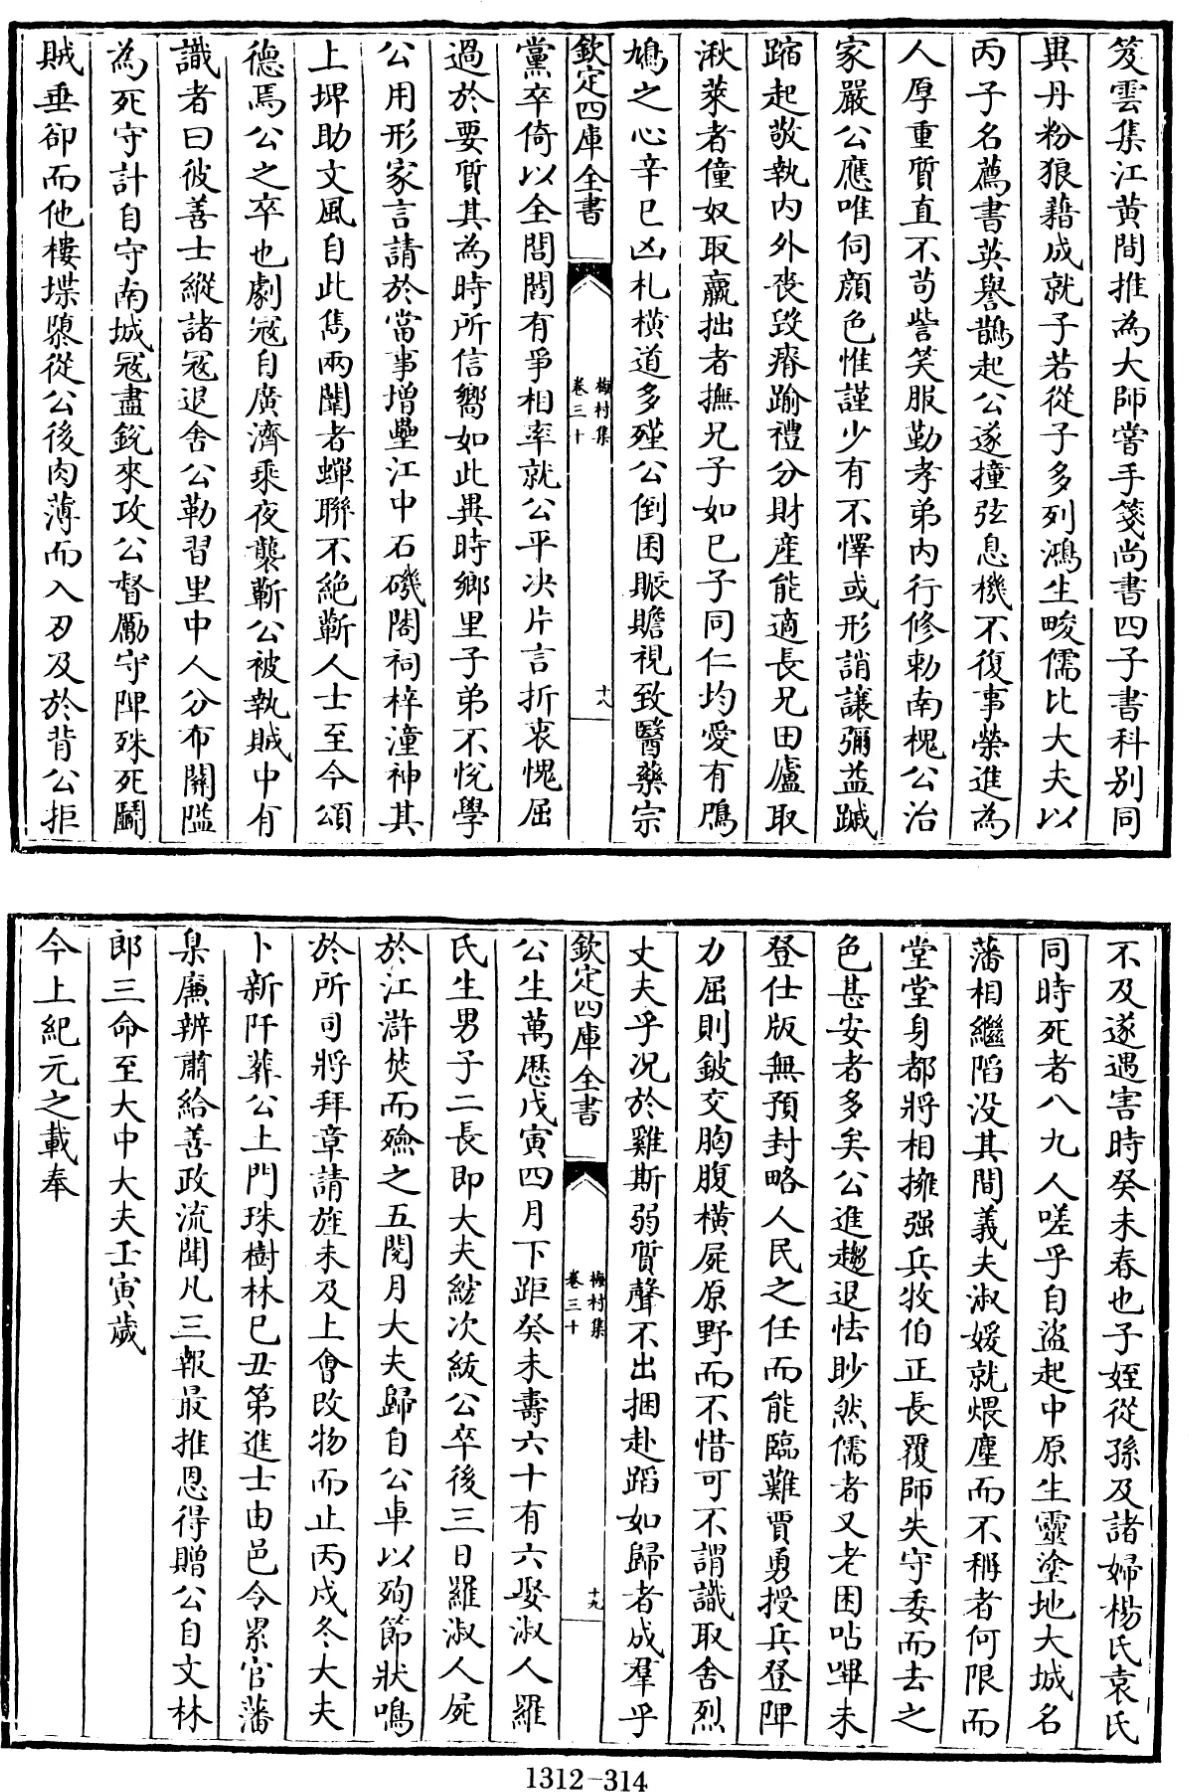 笈雲集江黄間推為大師嘗手箋尚書四子書科别同
異丹粉狼藉成就子若從子多列鴻生畯儒比大夫以
丙子名薦書英譽鵲起公遂撞弦息機不復事榮進為
人厚重質直不苟訾笑服勤孝弟内行修勅南槐公治
家嚴公應唯伺顔色惟謹少有不懌或形誚讓彌益踧
踖起敬執内外喪毁瘠踰禮分財産能適長兄田廬取
湫萊者僮奴取羸拙者撫兄子如已子同仁均愛有鳲
鳩之心辛巳凶札横道多殣公倒囷賑贍視致醫藥宗
欽定四庫全書
梅村集
卷三十
十八
黨卒倚以全閭閻有爭相率就公平决片言折衷愧屈
過於要質其為時所信嚮如此異時鄉里子弟不悦學
公用形家言請於當事增壘江中石磯閣祠梓潼神其
上埤助文風自此雋兩闈者蟬聯不絶蘄人士至今頌
德焉公之卒也劇冦自廣濟乘夜襲蘄公被執賊中有
識者曰彼善士縱諸冦退舍公勒習里中人分布關隘
為死守計自守南城冦盡銳來攻公督勵守陴殊死鬭
賊垂卻而他樓堞隳從公後肉薄而入刃及於背公拒
不及遂遇害時癸未春也子姪從孫及諸婦楊氏袁氏
同時死者八九人嗟乎自盗起中原生靈塗地大城名
藩相繼陷没其間義夫淑媛就煨塵而不稱者何限而
堂堂身都將相擁强兵牧伯正長覆師失守委而去之
色甚安者多矣公進趨退怯眇然儒者又老困呫嗶未
登仕版無預封略人民之任而能臨難賈勇授兵登陴
力屈則鈹交胸腹横屍原野而不惜可不謂識取舍烈
丈夫乎况於雞斯弱質聲不出捆赴蹈如歸者成羣乎
欽定四庫全書
梅村集
卷三十
十九
公生萬厯戊寅四月下距癸未壽六十有六娶淑人羅
氏生男子二長即大夫綻次紱公卒後三日羅淑人屍
於江滸焚而殮之五閱月大夫歸自公車以殉節狀鳴
於所司將拜章請旌未及上會改物而止丙戌冬大夫
卜新阡葬公上門珠樹林已丑第進士由邑令累官藩
臬廉辨肅給善政流聞凡三報最推恩得贈公自文林
郎三命至大中大夫壬寅歲
今上紀元之載奉
1312-314